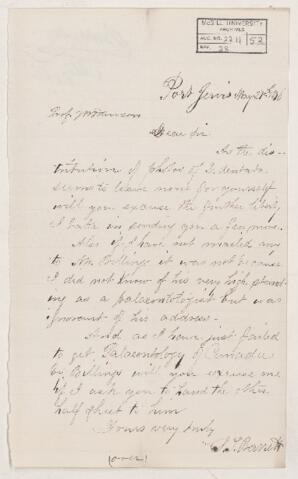 McGILL UNIVERSITY
ARCHIVES
ACC. NO. 2211 52
REF. 28
Port Jervis May
Prof. J W Dawson
Dear sir
As the dis-
tribution of photos of D. dentata
seems to leave none for yourself
will you excuse the further liberty
I take in sending you a few more.
Also if I have not mailed any
to Mr. Billings it was not because
I did not know of his very high stand-
ing as a palaeontologist but was
ignorant of his address.
And as I have just failed
to get Palaeontology of Canada
by Billings will you excuse me
if I ask you to hand the other
half sheet to him
Yours very truly
S. T. Barrett
(over)